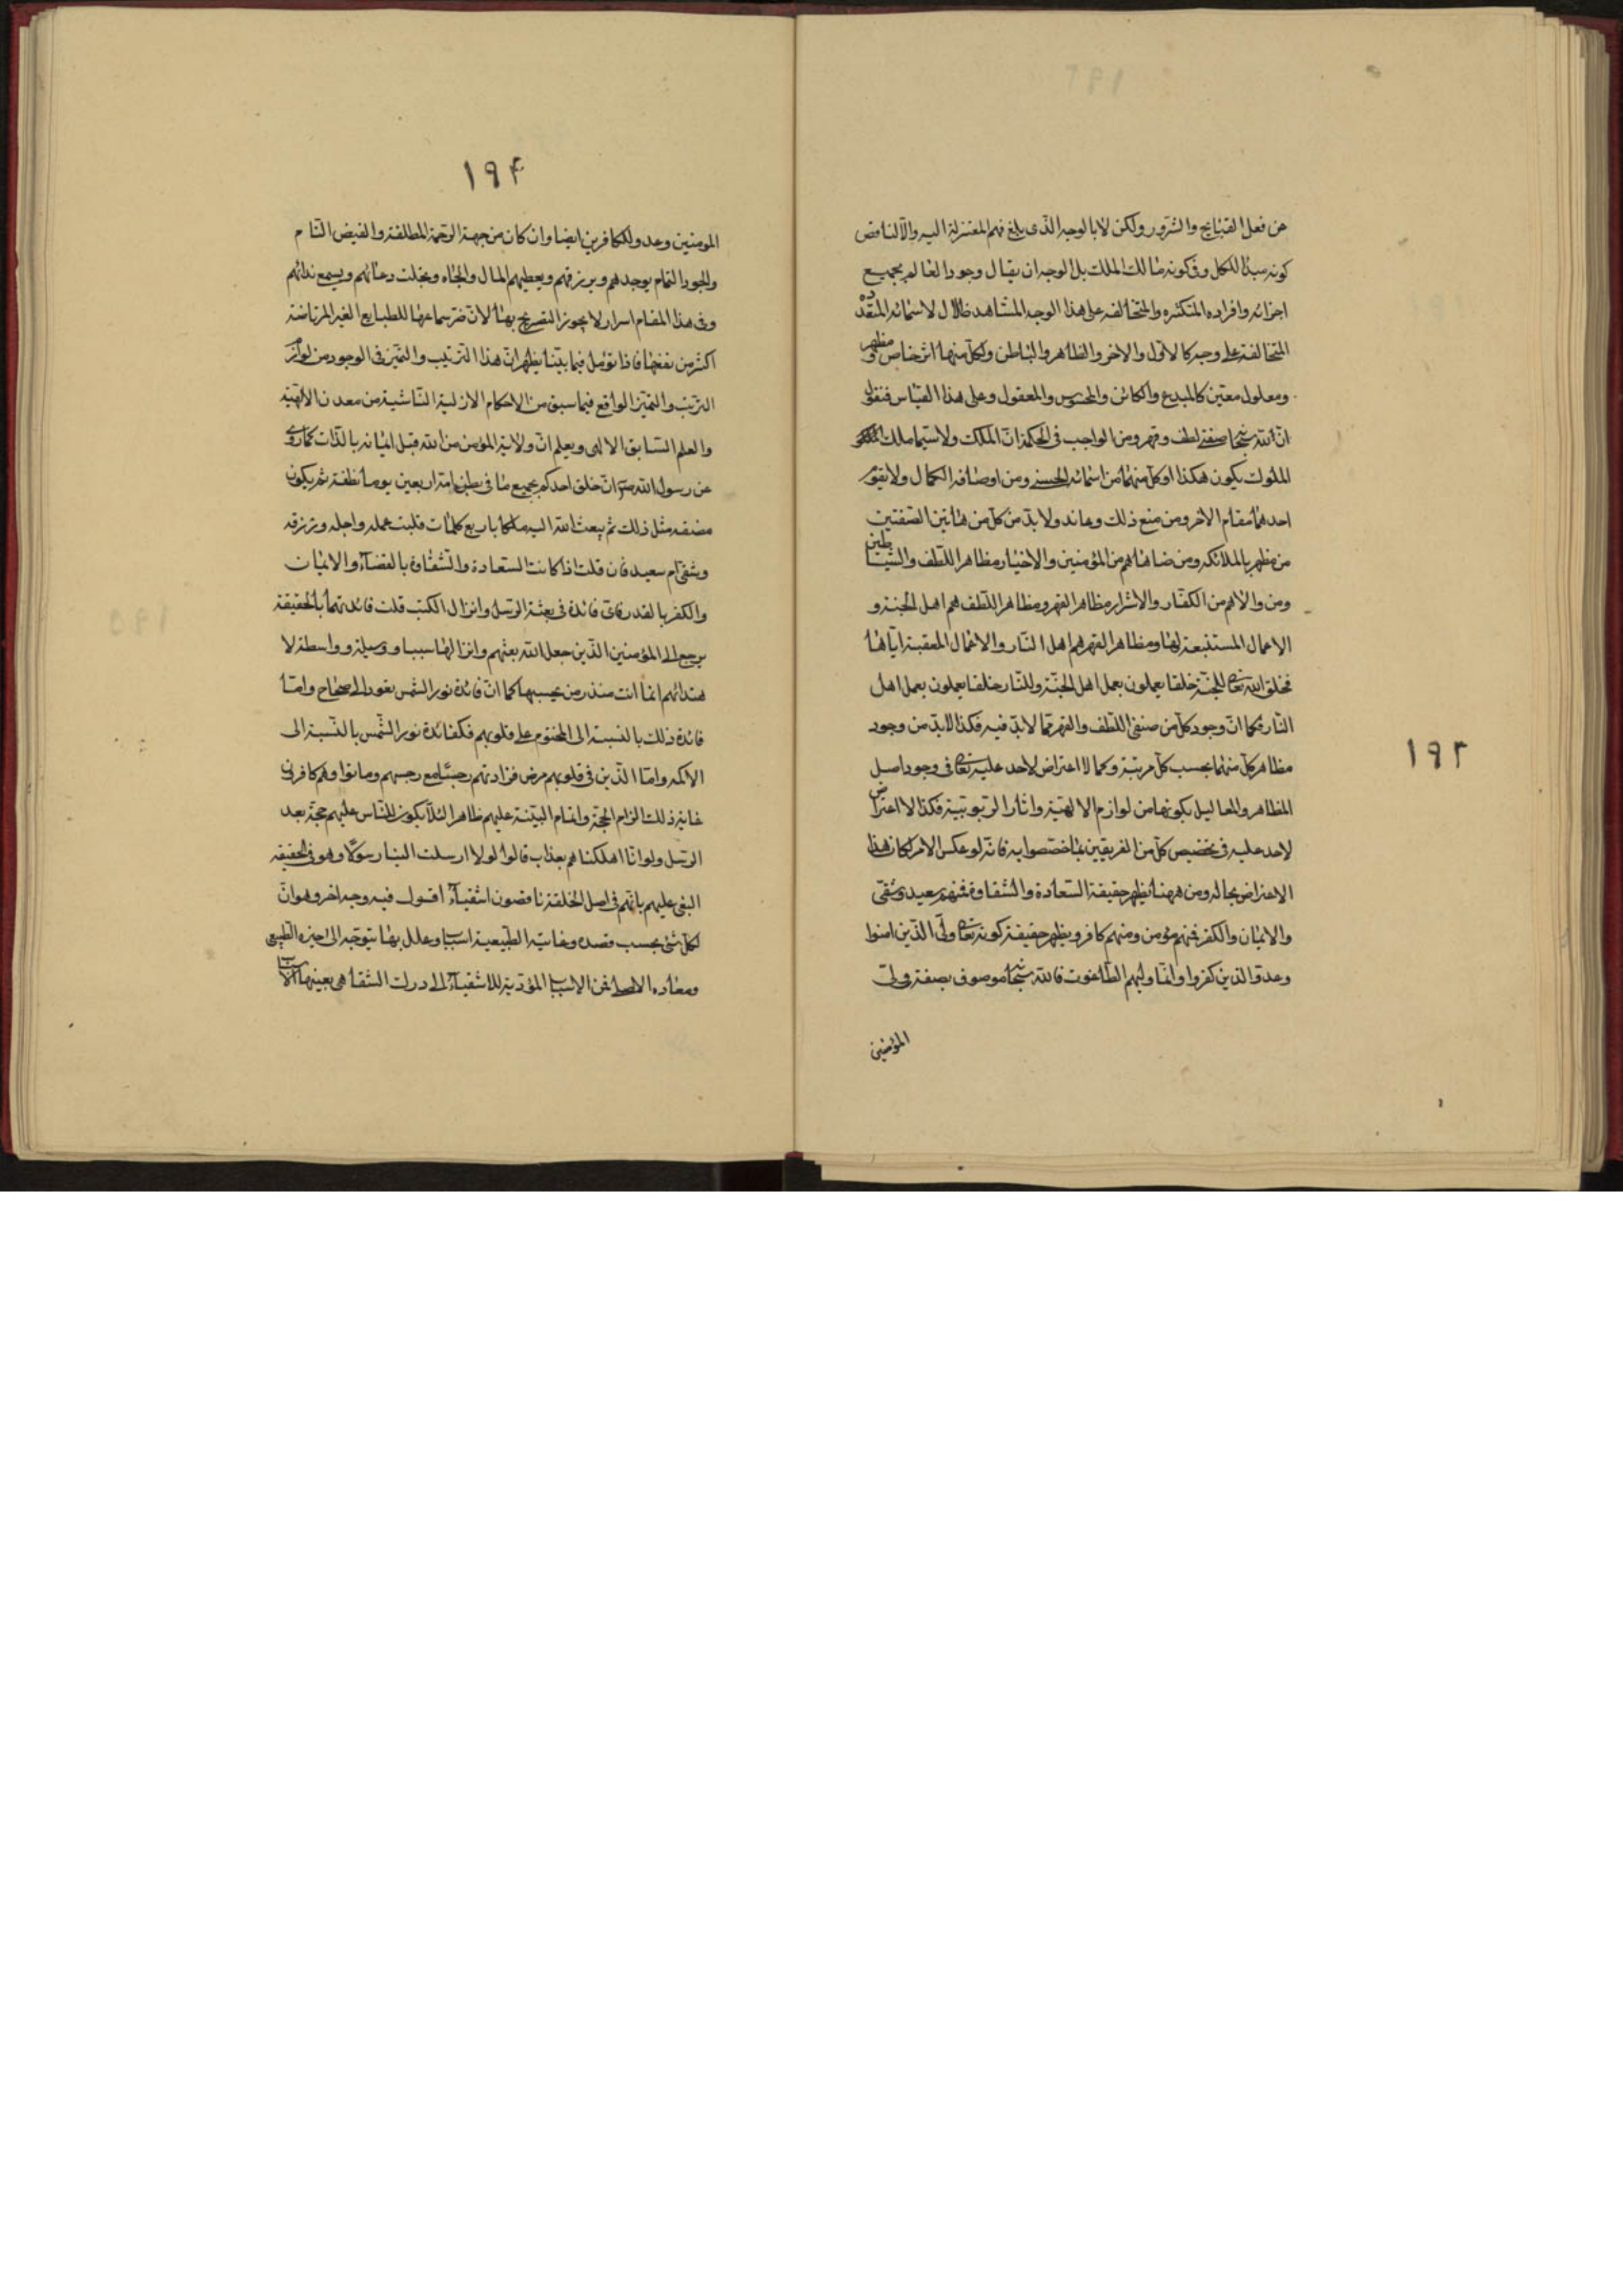 عن فعل القبايح والشرور ولكن لا بالوجه الذى بلغ فهم المعتزلة اليه والا لناقض
كونه مبدأ للكل وفى كونه مالك الملك بل الوجه ان يقال وجود العالم بجميع
اجزائه وافراده المتكثره والمتخالفه على هذا الوجه المشاهد ظلال لاسمائه المتعدده
المتخالفة على وجه كالاول والاخر والظاهر والباطن ولكل منها اثر خاص ومظهر
ومعلول معين كالمبدع والكائن والمحسوس والمعقول وعلى هذا القياس فنقول
ان لله سبحا صفتى لطف وقهر ومن الواجب فى الحكمة ان الملك ولا سيما ملك
الملوك يكون هكذا اذ كل منهما من اسمائه الحسنى ومن اوصافه الكمال ولا يقوم
احدهما مقام الاخر ومن منع ذلك وعاند ولا بد من كل من هاتين الصفتين
من مظهر بالملائكه ومن ضاهاهم من المؤمنين والاخيار مظاهر اللطف والشياطين
ومن والاهم من الكفار والاشرار مظاهر القهر ومظاهر اللطف هم اهل الجنة و
الاعمال المستتبعة لها ومظاهر القهر هم اهل النار والاعمال المعقبة اياها
فخلق الله تعا للجنة خلقا يعملون بعمل اهل الجنة وللنار خلقا يعملون بعمل اهل
النار فكما ان وجود كل من صنفى اللطف والقهر مما لا بد فيه فكذا لابد من وجود
مظاهر كل منهما بحسب كل مرتبة وكما لا اعتراض لاحد عليه تعا فى وجود اصل
المظاهر والمعاليل بكونها من لوازم الالهية واثار الربوبية فكذا لا اعتراض
لاحد عليه فى تخصيص كل من الفريقين بما اختصوا به فانه لو عكس الامر لكان هذا
الاعتراض بحاله ومن ههنا يظهر حقيقة السعادة والشقاوة فمنهم سعيد وشقى
والايمان والكفر فمنهم مؤمن ومنهم كافر ويظهر حقيقة كونه تعا ولى الذين امنوا
وعدو الذين كفروا وانما وليهم الطاغوت فالله سبحا موصوف بصفة ولى
المؤمنين
١٩٣
١٩۴
المومنين وعدو للكافرين ايضا وان كان من جهة الرحمة المطلقة والفيض التام
والجود التمام يوجدهم ويرزقهم ويعطيهم المال والجاه ويخلت دعائهم ويسمع ندائهم
وفى هذا المقام اسرار لا يجوز التصريح بها لان ضر سماعها للطبايع الغير المرتاضة
اكثر من نفعها فاذا تؤمل فيما بينا يظهر ان هذا الترتيب والتميز فى الوجود من لوازم
الترتيب والتميز الواقع فيما سبق من الاحكام الازلية الناشية من معدن الالهية
والعلم السابق الالهى ويعلم ان ولاية المؤمن من الله قبل ايمانه بالذات كما روى
عن رسول الله ص ان خلق احدكم يجمع ما فى بطن امه اربعين يوما نطفة ثم يكون
مضغه مثل ذلك ثم يبعث الله اليه ملكا باربع كلمات فليت عمله واجله ورزقه
وشقى ام سعيد فان قلت اذا كانت السعادة والشقاوة بالقضاء والايمان
والكفر بالقدر فاى فائدة فى بعثة الرسل وانزال الكتب قلت فائدتهما بالحقيقة
يرجع الى المؤمنين الذين جعل الله بعثهم وانزالها سببا ووسيلة وواسطة لا
هتدائهم انما انت منذر من يخشيها كما ان فائدة نور الشمس يعود الى صحاح واما
فائدة ذلك بالنسبة الى المختوم على قلوبهم فكفائدة نور الشمس بالنسبة الى
الاكمه واما الذين فى قلوبهم مرض فزادتهم رجسا مع رجسهم وماتوا وهم كافرين
غاية ذلك الزام الحجة واقام البينة عليهم ظاهرا لئلا يكون للناس عليهم حجة بعد
الرسل ولو انا اهلكناهم بعذاب قالوا لولا ارسلت الينا رسولا وهو فى الحقيقه
البغى عليهم بانهم فى اصل الخلقة ناقصون اشقياء اقول فيه وجه اخر وهو ان
لكل شئ بحسب قصده وغايته الطبيعية اسبابا وعلل بها يتوجه الى حيزه الطبيعى
ومعاده الاصلى فمن الاسباب المؤدية للاشقياء الى درك الشقا هى بعينها الاسباب